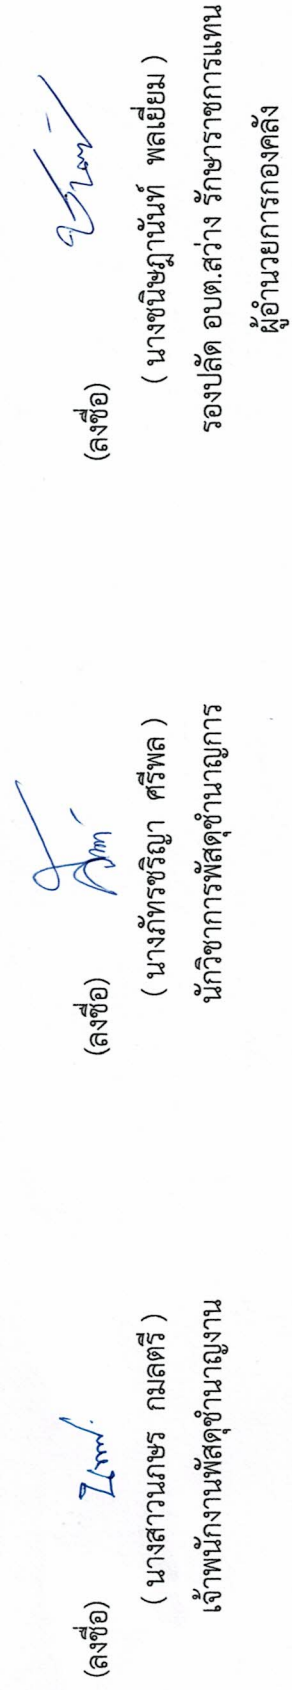 (ลงชื่อ)
( นางสาวนภษร กมลตรี )
เจ้าพนักงานพัสดุชำนาญงาน
(ลงชื่อ)
( นางภัทรชริญา ศรีพล )
นักวิชาการพัสดุชำนาญการ
(ลงชื่อ)
( นางชนิษฎานันท์ พลเยี่ยม )
รองปลัด อบต.สว่าง รักษาราชการแทน
ผู้อำนวยการกองคลัง